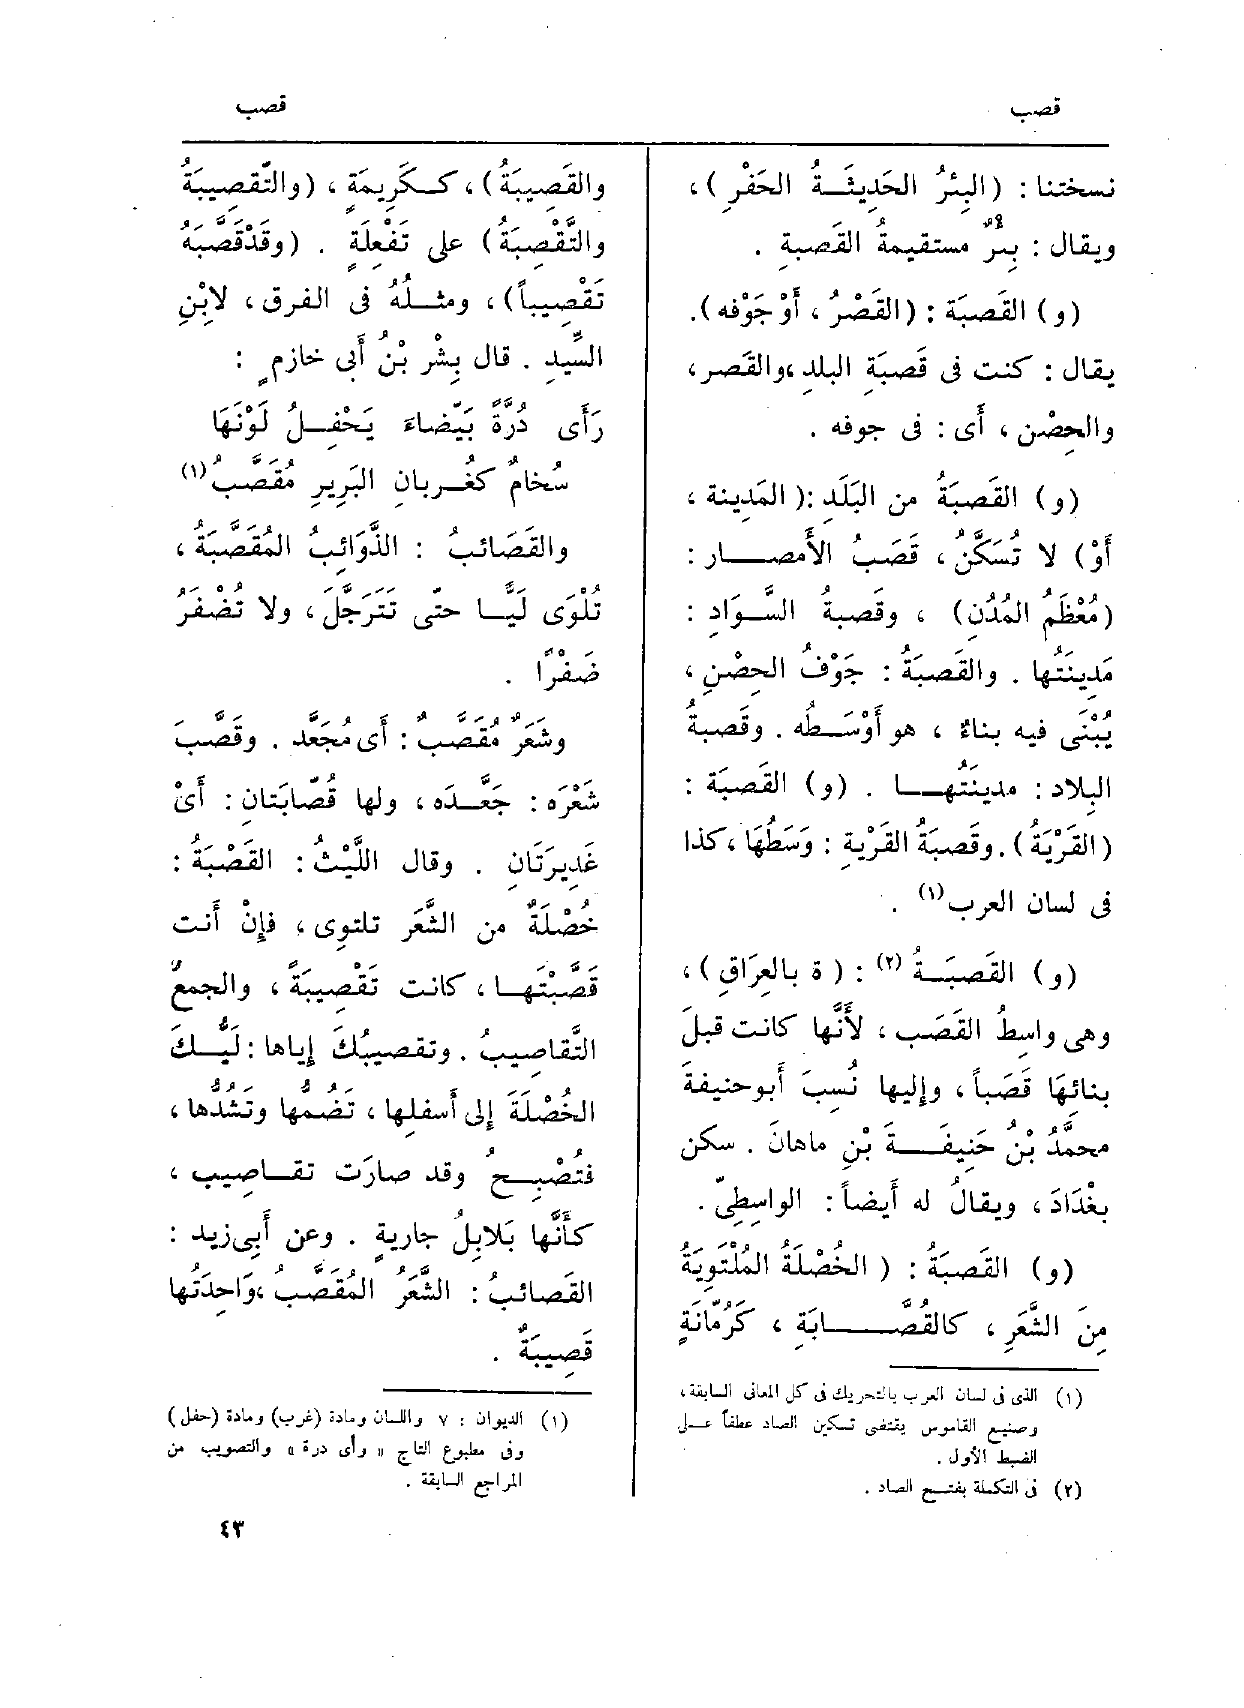 قصب
قصب
نسختنا : (البِئرُ الحَدِيثَـةُ الحَفْرِ) ،
ويقال : بِئرٌ مستقيمةُ القَصَبةِ .
(و) القَصَبَة : (القَصْرُ ، أَوْ جَوْفه) .
يقال : كنت فى قَصَبَةِ البلدِ ، والقَصر ،
والحِصْن ، أَى : فى جوفه .
(و) القَصَبَةُ من البَلَد : (المَدِينة ،
أَوْ) لا تُسَكَّنُ ، قَصَبُ الأَمصـــار :
(مُعْظَمُ المُدُن) ، وقَصبةُ السَّـوَادِ :
مَدِينَتُها . والقَصَبَةُ : جَوْفُ الحِصْنِ ،
يُبْنَى فيه بناءٌ ، هو أَوْسَطُه . وقَصبةُ
البلادِ : مدينَتُهــا . (و) القَصَبَة :
(القَرْيَةُ) . وقَصَبَةُ القَرْيةِ : وَسَطُها ، كذا
فى لسان العرب(١) .
(و) القَصَبَـةُ (٢) : (ة بالعِرَاقِ) ،
وهى واسِطُ القَصَبِ ، لأَنَّها كانت قبلَ
بنائها قَصَباً ، وإِليها نُسبَ أَبو حنيفةَ
محمَّدُ بْنُ حَنِيفَـــةَ بْنِ ماهانَ . سكن
بَغْدَادَ ، ويقالُ له أَيضاً : الواسِطِىّ .
(و) القَصَبَةُ : (الخُصْلَةُ المُلْتَوِيَةُ
مِنَ الشَّعَرِ ، كالقُصَّـــابَةِ ، كَرُمّانَةٍ
(١) الذى فى لسان العرب بالتحريك فى كل المعانى السابقة ،
وصنيع القاموس يقتضى تسكين الصاد عطفاً عـلى
الضبط الأول .
(٢) فى التكملة بفتـح الصاد .
والقَصِيبَةُ) ، كـكَرِيمَةٍ ، (والتَّقصِيبَةُ
والتَّقْصِبَةُ) على تَفْعِلَةٍ . (وقَدْ قَصَّبَهُ
تَقْصِيباً) ، ومثـلُهُ فى الفرق ، لابْنِ
السِّيدِ . قال بِشْر بْنُ أَبى خازمٍ :
رَأَى دُرَّةً بَيْضاءَ يَحْفِـلُ لَوْنَها
سُخامٌ كغُـربانِ البَرِيرِ مُقَصَّبُ(١)
والقَصَائبُ : الذَّوَائِبُ المُقَصَّبَةُ ،
تُلْوَى لَيًّـا حتى تَتَرَجَّلَ ، ولا تُضْفَرُ
ضَفْرًا .
وشَعَرٌ مُقَصَّبٌ : أَى مُجَعَّد . وقَصَّبَ
شَعْرَه : جَعَّـدَه ، ولها قُصّابَتَانِ : أَىْ
غَدِيرَتَانِ . وقال اللَّيْثُ : القَصْبَةُ :
خُصْلَةٌ من الشَّعَر تلتوى ، فإِنْ أَنت
قَصَّبْتَهـا ، كانت تَقْصِيبَةً ، والجمعُ
التَّقاصِيبُ . وتقصِيبُكَ إِياها : لَيُّـكَ
الخُصْلَةَ إِلى أَسفلِها ، تَضُمُّها وتَشُدُّها ،
فتُصْبِـحُ وقد صارَت تقـاصِيب ،
كأَنَّها بَلابِلُ جاريةٍ . وعن أَبِى زيد :
القَصائبُ : الشَّعَرُ المُقَصَّبُ ، وَاحِدَتُها
قَصِيبَةٌ .
(١) الديوان : ٧ واللسان ومادة (غرب) ومادة (حفل)
وفى مطبوع التاج « رأى درة » والتصويب من
المراجع السابقة .
٤٣